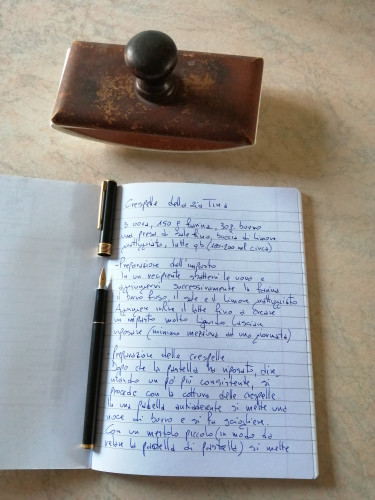 Crespelle della zia Tina
3 uova, 150 g farina, 30g burro
una presa di sale fino, buccia di limone
grattugiato, latte q.b (180-200 ml circa)
- Preparazione dell'impasto
In un recipiente sbattere le uova e
aggiungervi successivamente la farina
il burro fuso, il sale e il limone grattugiato
Aggiungere infine il latte fino a creare
un impasto molto liquido. Lasciare
riposare (minimo mezzora ad una giornata)
- Preparazione delle crespelle
Dopo che la pastella ha riposato, dive
ntando un po' più consistente, si
procede con la cottura delle crespelle
In una padella antiaderente si mette una
noce di burro e si fa sciogliere.
Con un mestolo piccolo (in modo da
velare la padella di pastella) si mette